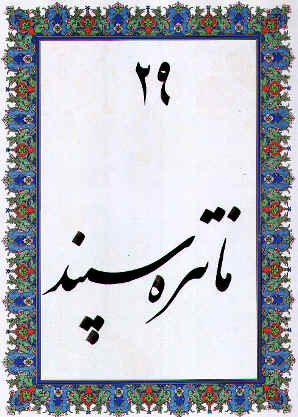 ۲۹
مانتره سپند